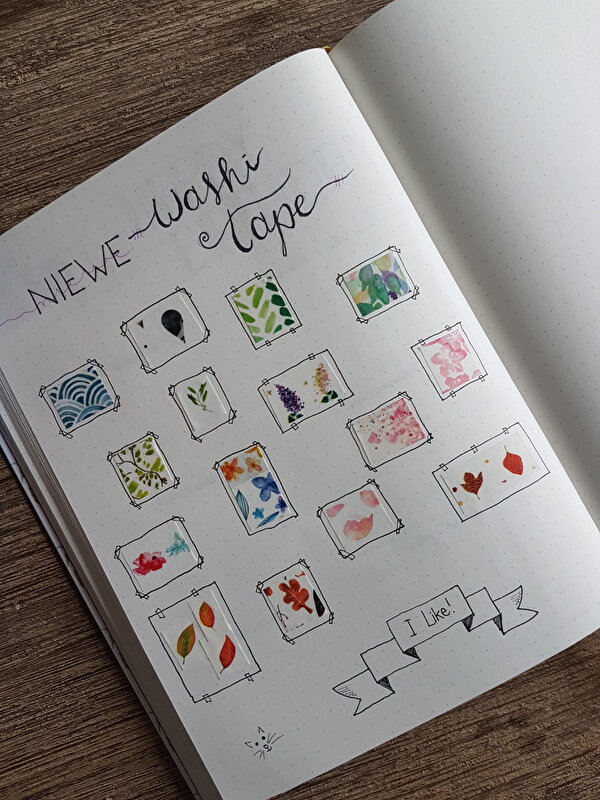 NIEWE Washi
tape
I Like!